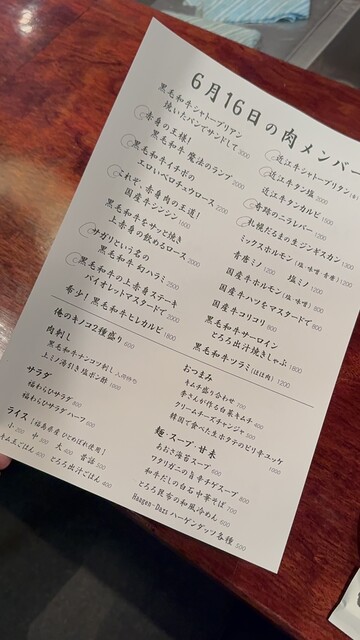 6月16日の肉メンバー
黒毛和牛シャトーブリアン
焼いたパンでサンドして 3000
赤身の王様!
黒毛和牛 魔法のランプ 2000
黒毛和牛イチボの
エロいペロチュウロース 2200
これぞ、赤身肉の王道!
国産牛シンシン 1600
黒毛和牛をサッと焼き
上赤身の飲めるロース 2000
サガリという名の
黒毛和牛 幻ハラミ 2500
黒毛和牛の上赤身ステーキ
バイオレットマスタードで 2000
希少!黒毛和牛ヒレカルビ 1800
近江牛シャトーブリアン
近江牛タン塩 2000
近江牛タンカルビ 1500
奇跡のニラレバー 1200
札幌だるまの生ジンギスカン 1300
ミックスホルモン (塩・味噌・青唐) 1200
青唐ミノ 1200 塩ミノ 1200
国産牛ホルモン (塩・味噌) 800
国産牛ハツをマスタードで 800
国産牛コリコリ 800
黒毛和牛サーロイン
とろろ出汁焼きしゃぶ 1800
黒毛和牛ツラミ(ほほ肉) 1200
俺のキノコ2種盛り 600
肉刺し
黒毛和牛ナンコツ刺し 入荷待ち
上ミノ湯引き塩ポン酢 1000
サラダ
福わらびサラダ 800
福わらびサラダ ハーフ 500
ライス [福島県産 ひとめぼれ使用]
小 200 中 300 大 400 昔話 500
キムえごはん 400 とろろ出汁ごはん 400
おつまみ
キムチ盛り合わせ 700
李さんが作る白菜キムチ 400
クリームチーズチャンジャ 500
韓国で食べた生ホタテのピリキュッケ 1000
麺・スープ、甘味
あおさ海苔スープ 600
ワタリガニの旨辛チゲスープ 800
和牛だしの白石中華そば 700
とろろ昆布の和風冷めん 800
Haagen-Dazs ハーゲンダッツ各種 500